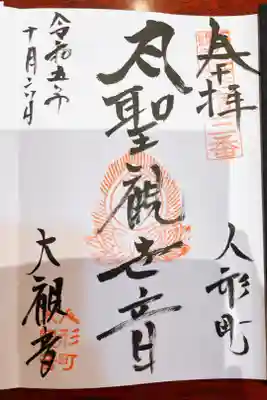 奉拝
三番
人形町
大聖觀世音
令和五年
十月
日
大観音
人形町